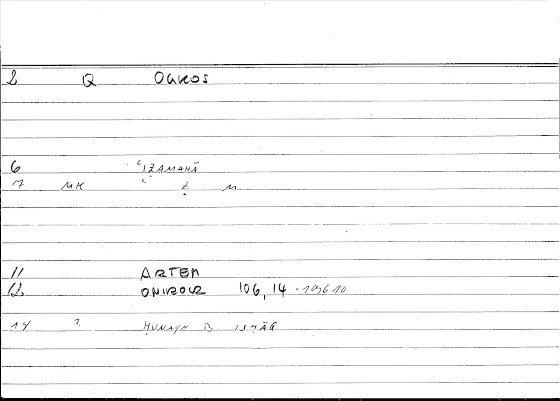 2 Q OGKOS
6 ʿIẒAMAHĀ
7 MK ʿ Ẓ M
11 ARTEM
12 ONIROCR 106, 14 - 19610
14 ? ḤUNAYN B ISḤĀQ